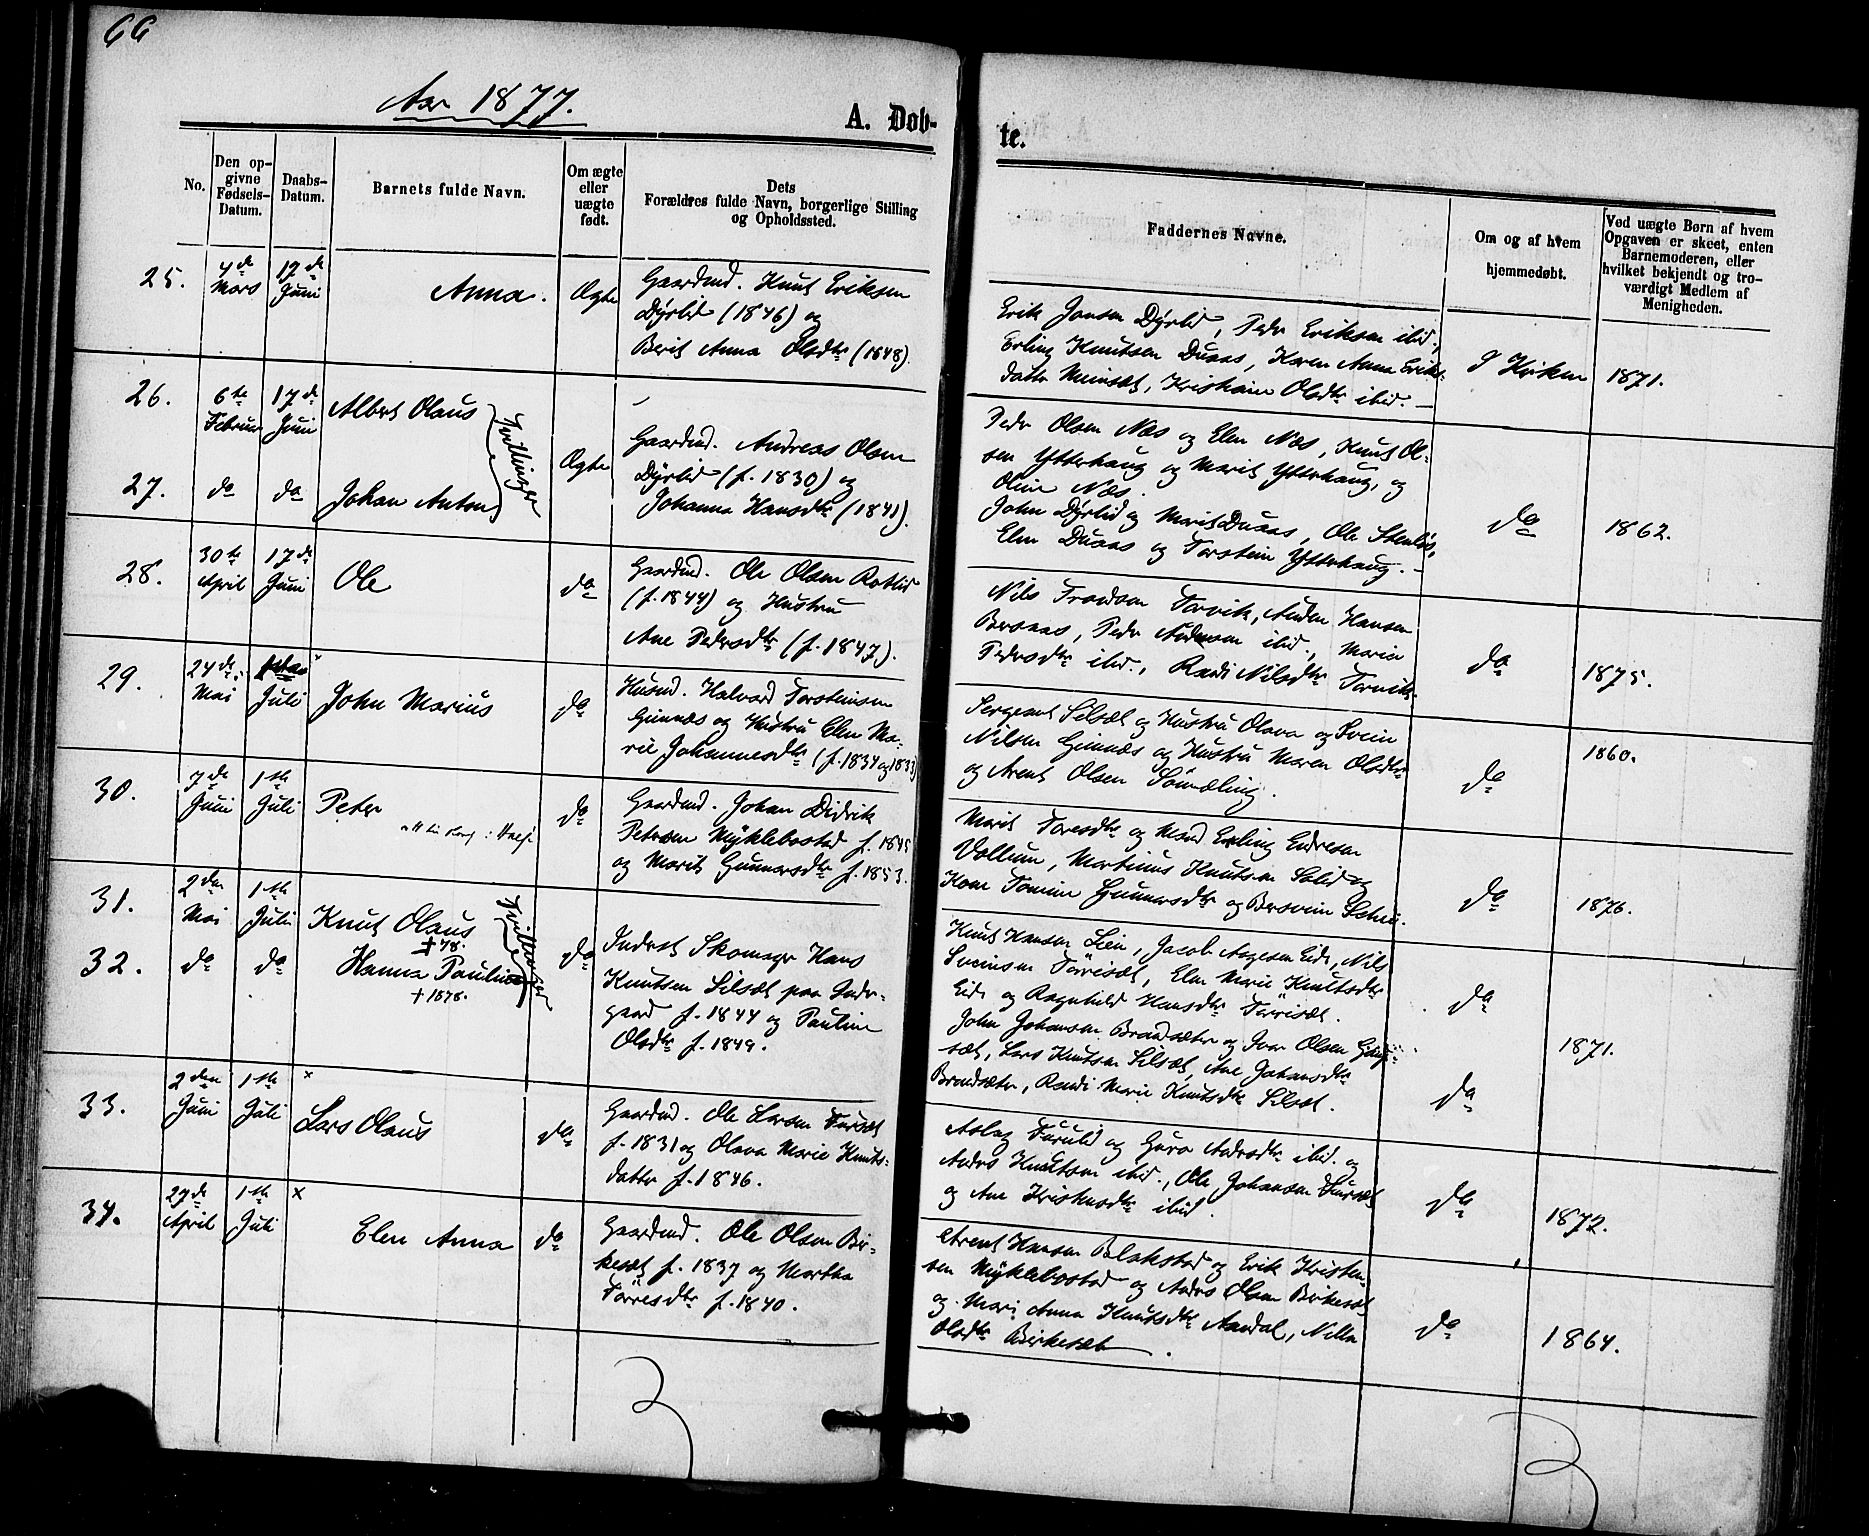 66
Aar 1877.
A. Døb-
te.
No.
Den op-
givne
Fødsels-
Datum.
Daabs-
Datum.
Barnets fulde Navn.
Om ægte
eller
uægte
født.
Dets
Forældres fulde Navn, borgerlige Stilling
og Opholdssted.
Faddernes Navne.
Om og af hvem
hjemmedøbt.
Ved uægte Børn af hvem
Opgaven er skeet, enten
Barnemoderen, eller
hvilket bekjendt og tro-
værdigt Medlem af
Menigheden.
25.
4de
Mars
17de
Juni
Anna.
Ægte
Gaardmd. Knut Eriksen
Dyrlid (1846) og
Berit Anna Olsdtr (1848).
Erik Jonsen Dyrlid, Peder Eriksen ibid.,
Erling Knutsen Duaas, Karen Anna Eriks-
datter Meisæt, Kristiane Olsdtr ibid. –
I Kirken
1871.
26.
6te
Februar
17de
Juni
Albert Olaus
Tvillinger
27.
do
do
Johan Anton
Ægte
Gaardmd. Andreas Olsen
Dyrlid (f. 1830) og
Johanna Hansdtr (1841).
Peder Olsen Næs og Elen Næs, Knut Ol-
sen Ytterhaug og Marit Ytterhaug, og
Oline Næs.
John Dyrlid og Marit Duaas, Ole Stenløs,
Elen Duaas og Torstein Ytterhaug. –
do
1862.
28.
30te
April
17de
Juni
Ole
do
Gaardmd. Ole Olsen Rotlid
(f. 1844) og Hustru
Ane Pedersdtr (f. 1847).
Nils Trondsen Torvik, Anders Hansen
Bersaas, Peder Andersen ibid., Marie
Pedersdtr ibid., Randi Nilsdtr Torvik.
do
1875.
29.
24de
Mai
Juli
John Marius
do
Husmd. Halvard Torsteinsen
Gimnæs og Hustru Elen Ma-
rie Johannesdtr (f. 1834 og 1833)
Sergeant Silsæt og Hustru Olava og Svein
Nilsen Gimnæs og Hustru Maren Olsdtr
og Arent Olsen Sandling.
do
1860.
30.
7de
Juni
1ste
Juli
Peter
do
Gaardmd. Johan Didrik
Petersen Myklebostad f. 1845
og Marit Gunnarsdtr f. 1853.
Marit Toresdtr og Mand Erling Endresen
Vollum, Martinus Knutsen Solid og
Kone Tomine Gunnarsdtr og Bersvein
do
1876.
31.
2den
Mai
1ste
Juli
Knut Olaus
† 78.
Tvillinger
32.
do
do
Hanna Pauline
† 1878.
do
Inderst Skomager Hans
Knutsen Silsæt paa Inder-
gaard f. 1844 og Pauline
Olsdtr f. 1849.
Knut Hansen Lien, Jacob Aagesen Eide, Nils
Sveinsen Tørrisæt, Elen Marie Knutsdtr
Eide og Ragnhild Hansdtr Tørrisæt.
do
John Johansen Brandsæter og Iver Olsen
sæt, Lars Knutsen Silsæt, Ane Johansdtr
Brandsæter, Randi Marie Knutsdtr Silsæt.
1871.
do
33.
2den
Juni
1ste
Juli
x
Lars Olaus
do
Gaardmd. Ole Larsen Fursæt
f. 1831 og Olava Marie Knuts-
datter f. 1846.
Aslag Furulid og Guro Andersdtr ibid. og
Anders Knutsen ibid., Ole Johansen Fursæt
og Ane Kristensdtr ibid.
do
1872.
34.
29de
April
1ste
Juli
x
Elen Anna
do
Gaardmd. Ole Olsen Bir-
kesæt f. 1837 og Martha
Tørresdtr f. 1840.
Arent Hansen Blakstad og Erik Kristen-
sen Myklebostad og Anders Olsen Birkesæt
og Mari Anna Knutsdtr Aandal, Nilla
Olsdtr Birkesæt.
do
1864.